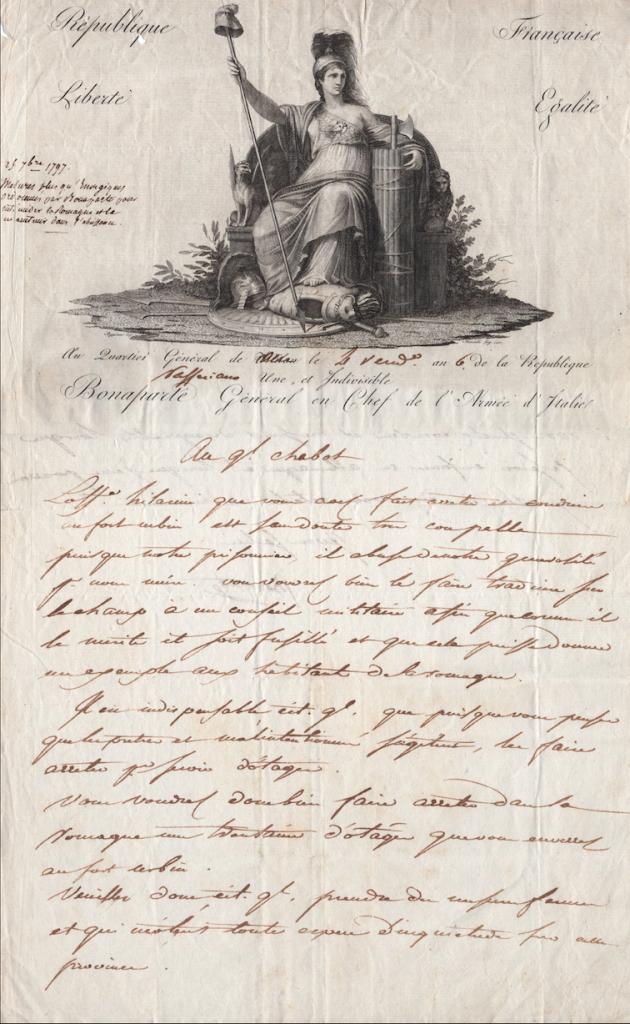 République Française
Liberté Egalité
25 7bre 1797.
Mesures plus qu'énergiques
ordonnées par Bonaparte pour
intimider la Romagne et la
maintenir dans l'obéissance.
Au Quartier Général de Milan le 4 vend.re an 6 de la République
Passeriano Une et Indivisible
Bonaparte Général en Chef de l'Armée d'Italie
Au gl chabot
hilaire que vous avez fait arreter et conduire
au fort urbin est sans doute tres coupable
puisque notre prisonnier, il
pr nous nuire. vous voudrez bien le faire traduire sur
le champ à un conseil militaire afin que comme il
le merite il soit fusillé et que cela puisse donner
un exemple aux habitant de la romagne.
Il est indispensable cit. gl. que puisque vous pensez
que les pretres et malintentionné s'agitent, les faire
arreter pr servir d'otages.
Vous voudrez donc bien faire arreter dans la
romagne une trentaine d'otages que vous enverrez
au fort urbin.
Veuillez donc cit. gl. prendre des mesures fermes
et qui m'otent toute espece d'inquietude sur cette
province.